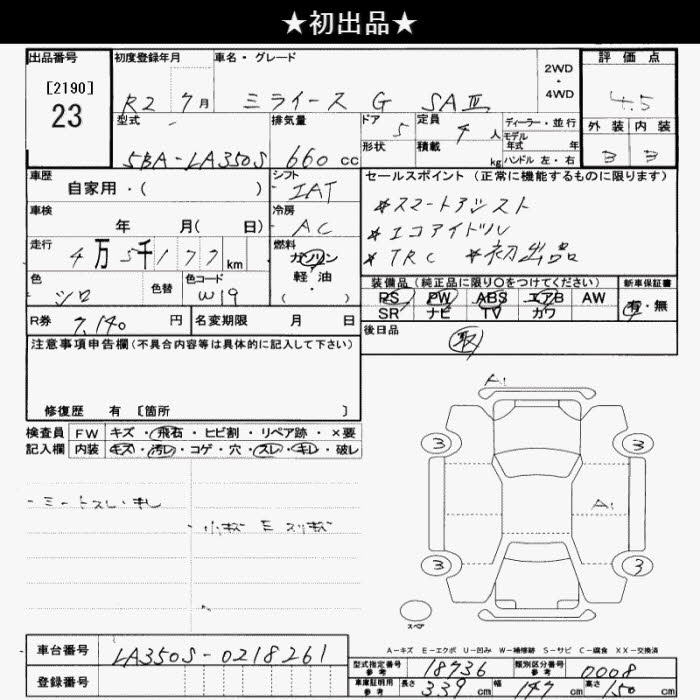 ★初出品★
出品番号
[2190]
23
初度登録年月
R2 7月
車名・グレード
ミライース G SAⅢ
2WD
・
4WD
評価点
4.5
外装 内装
3 3
型式
5BA-LA350S
排気量
660 cc
ドア 5
形状
定員 4 人
積載 kg
ディーラー・並行
モデル
年式 年
ハンドル 左・右
車歴
自家用・( )
シフト
IAT
セールスポイント (正常に機能するものに限ります)
*スマートアシスト
*エコアイドル
*TRC *初出品
車検
年 月( 日)
冷房
AC
走行
4万5千177km
燃料
ガソリン
軽・油
( )
色
シロ
色替
色コード
W19
装備品(純正品に限り○をつけてください)
PS PW ABS エアB AW
SR ナビ TV カワ
新車保証書
有・無
R券 7,140 円
名変期限 月 日
後日品
取
注意事項申告欄(不具合内容等は具体的に記入して下さい)
修復歴 有 [箇所 ]
検査員
記入欄
FW キズ・飛石・ヒビ割・リペア跡・×要
内装 キズ・汚レ・コゲ・穴・スレ・キレ・破レ
A1
3 3
A1
3 3
スペア
A-キズ E-エクボ U-凹み W-補修跡 S-サビ C-腐食 XX-交換済
車台番号 LA350S-0218261
登録番号
型式指定番号
参考
18736
類別区分番号
参考
0008
車庫証明用
参考
長さ 339 cm 幅 147 cm 高さ 150 cm